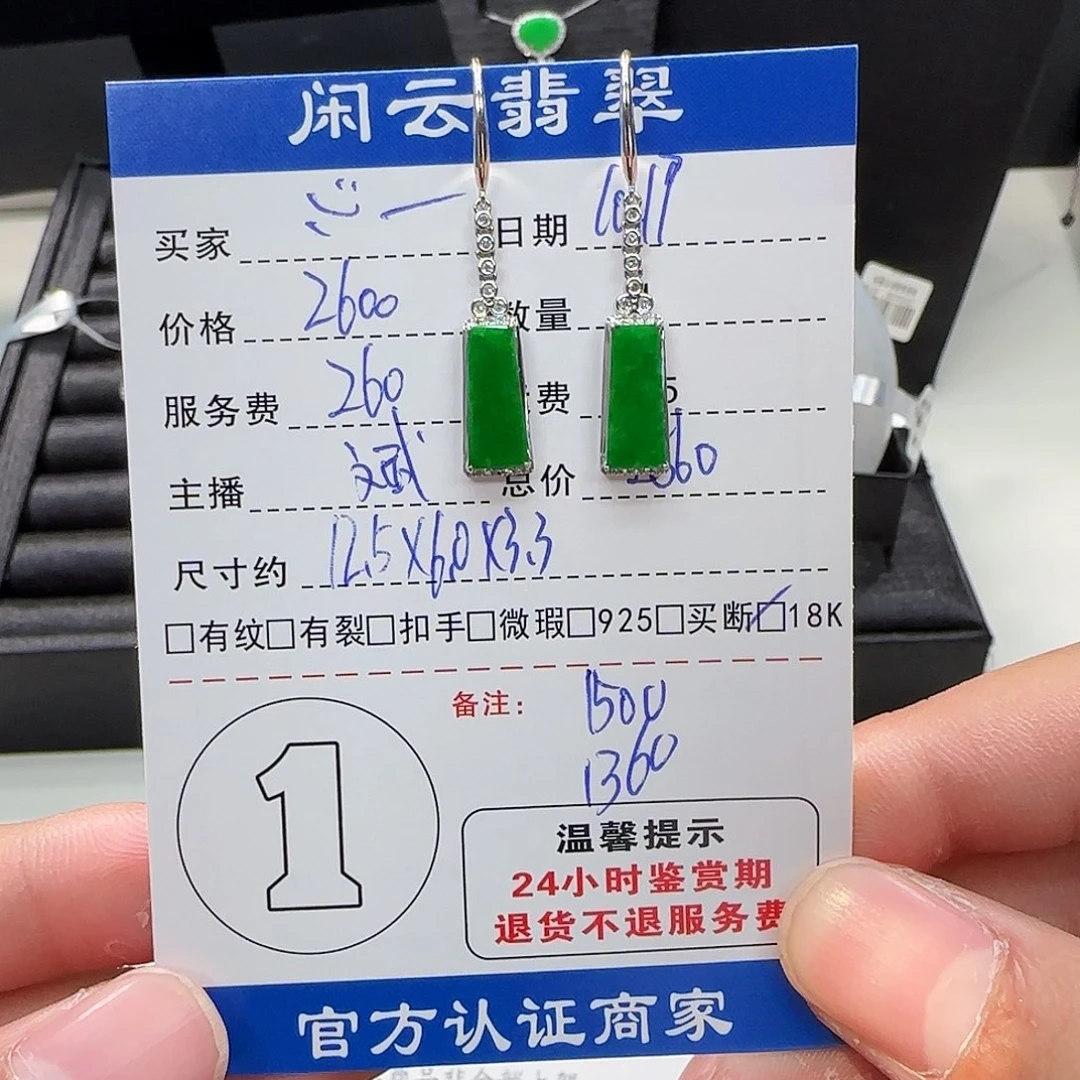 闲云翡翠
买家 日期 10.17
价格 2600 数量
服务费 260 费 5
主播 文武 总价 60
尺寸约 12.5X6.0X3.3
□有纹□有裂□扣手□微瑕□925□买断□18K
备注: 1500
1360
1
温馨提示
24小时鉴赏期
退货不退服务费
官方认证商家